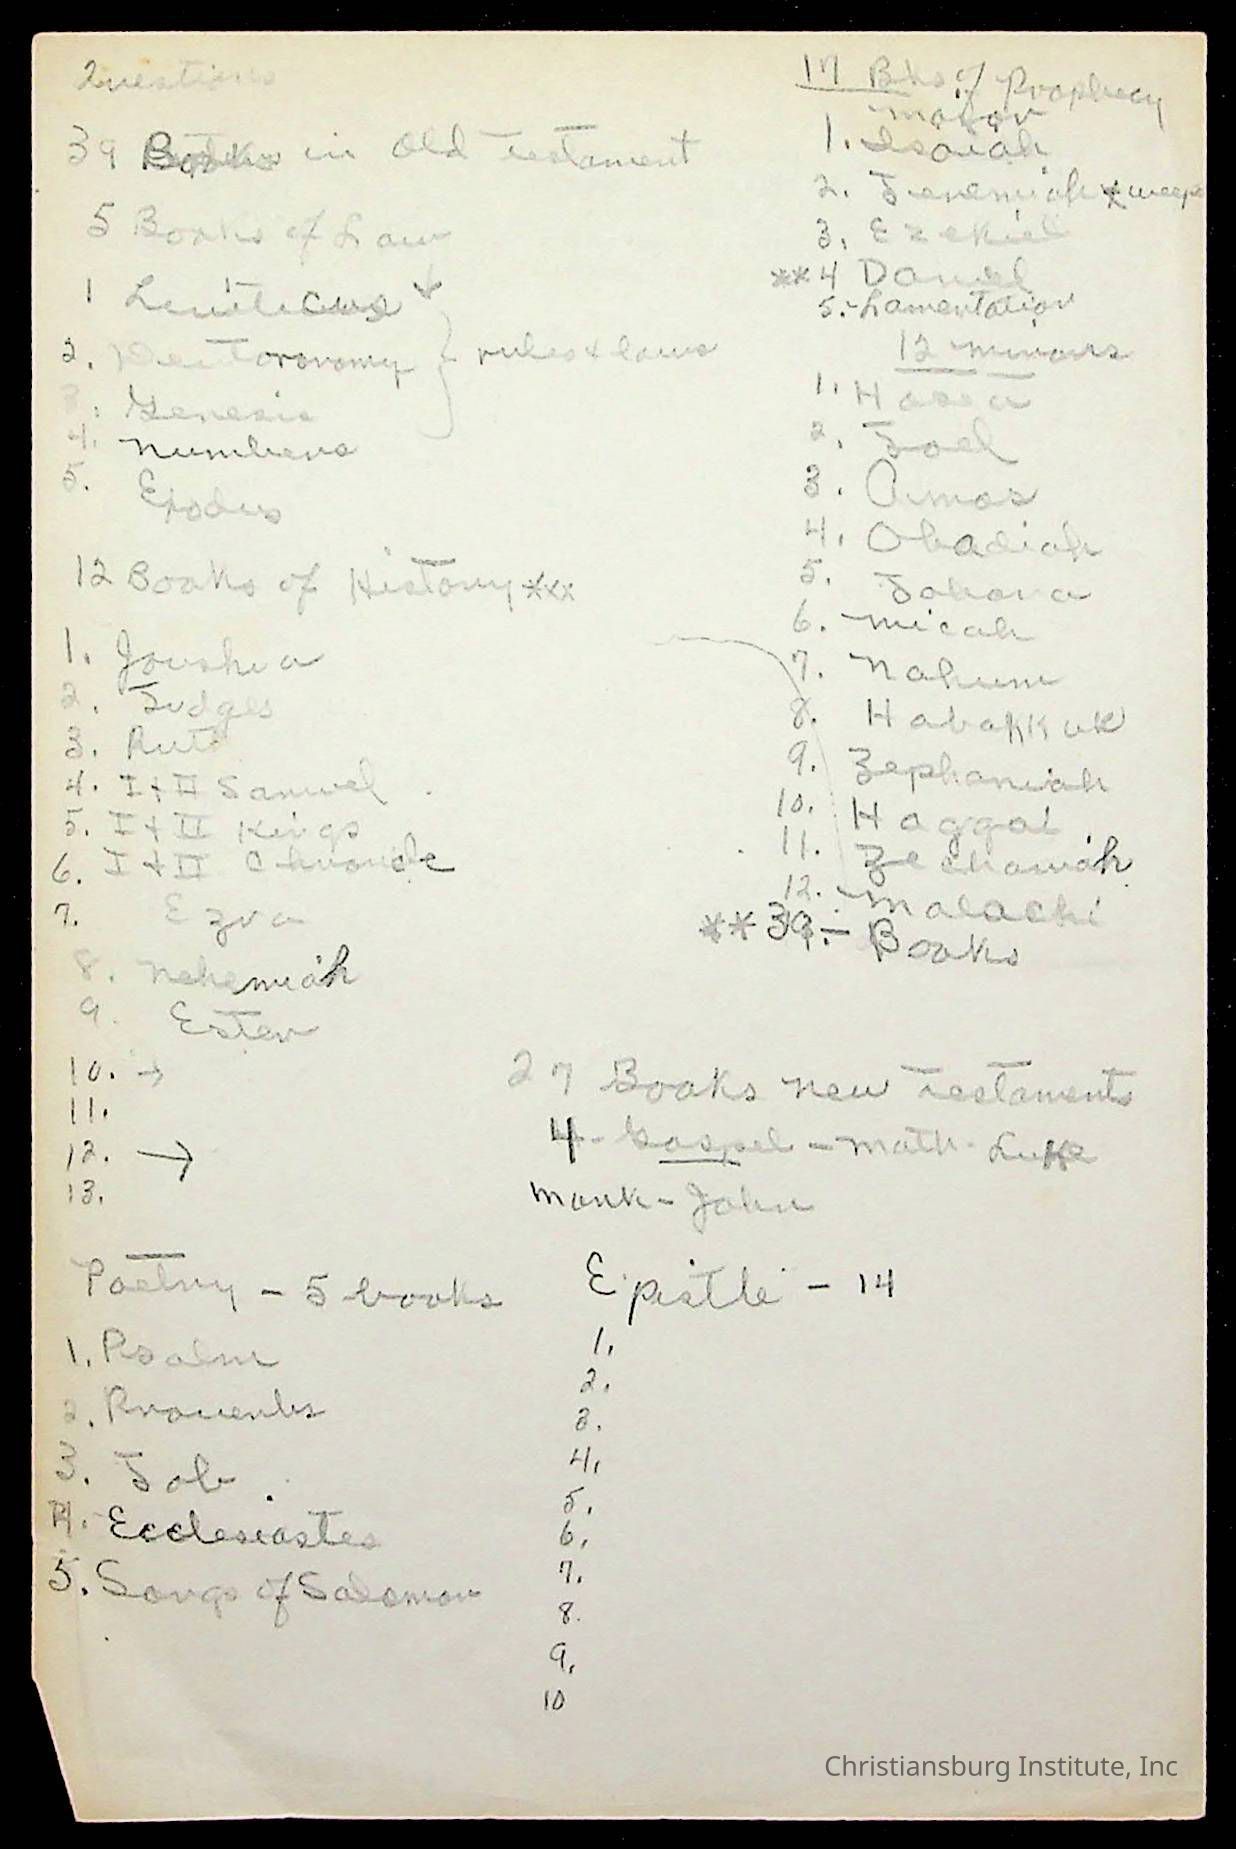 Questions
39 Books in Old Testament
5 Books of Law
1 Leviticus
2. Deutoronomy } rules & laws
3. Genesis
4. Numbers
5. Exodus
12 Books of History *xx
1. Joushua
2. Judges
3. Rut
4. I + II Samuel
5. I + II Kings
6. I + II Chronicle
7. Ezra
8. Nehemiah
9. Ester
10. →
11.
12. →
13.
Poetry - 5 books
1. Psalm
2. Proverbs
3. Job
4. Ecclesiastes
5. Songs of Solomon
17 Bks of Prophecy
major
1. Isaiah
2. Jeremiah
3. Ezekiel
**4 Daniel
5. - Lamentation
12 minors
1. Hosea
2. Joel
3. Amos
4. Obadiah
5. Johona
6. Micah
7. Nahum
8. Habakkuk
9. Zephaniah
10. Haggai
11. Zechariah
12. Malachi
** 39. - Books
27 Books New Testaments
4 - Gospel - Math - Luke
Mark - John
Epistle - 14
1.
2.
3.
4.
5.
6.
7.
8.
9.
10
Christiansburg Institute, Inc